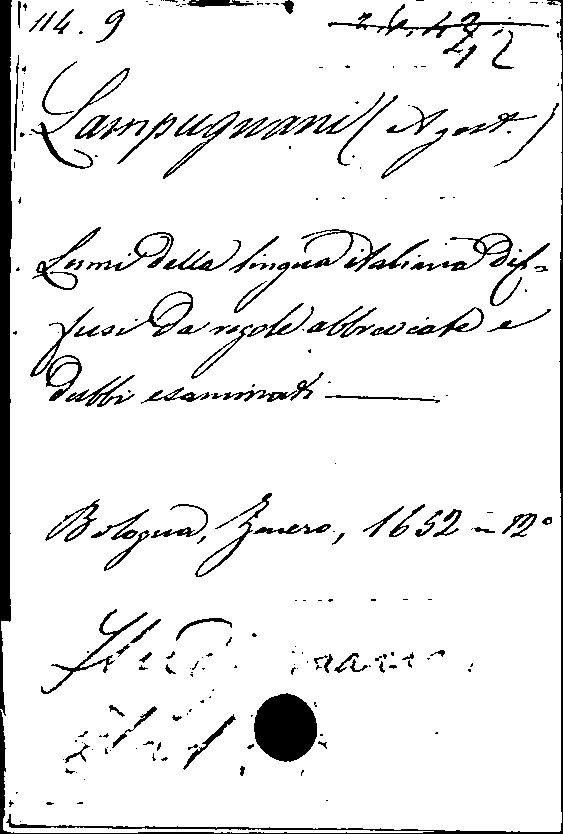 114. 9
42
Lampugnani (Agost.)
Lumi della lingua italiana dif=
fusi da regole abbreviate e
dubbi esaminati ———
Bologna, Zenero, 1652 in 12°